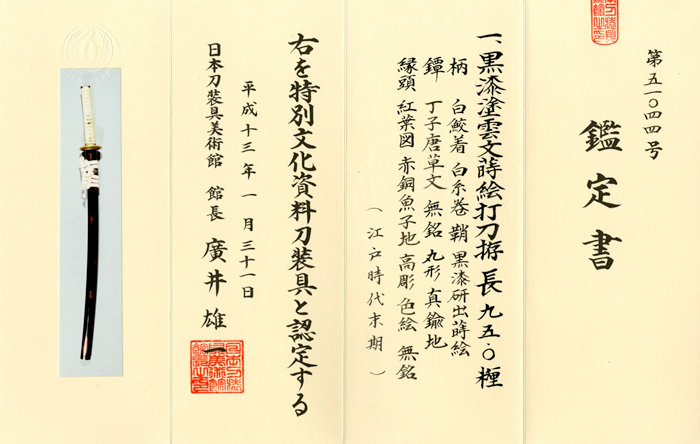 第五一〇四四号
鑑定書
一、黒漆塗雲文蒔絵打刀拵 長 九五.〇 糎
柄 白鮫着 白糸巻 鞘 黒漆研出蒔絵
鐔 丁子唐草文 無銘 丸形 真鍮地
縁頭 紅葉図 赤銅魚子地 高彫 色絵 無銘
(江戸時代末期)
右を特別文化資料刀装具と認定する
平成十三年一月三十一日
日本刀装具美術館 館長 廣井雄一